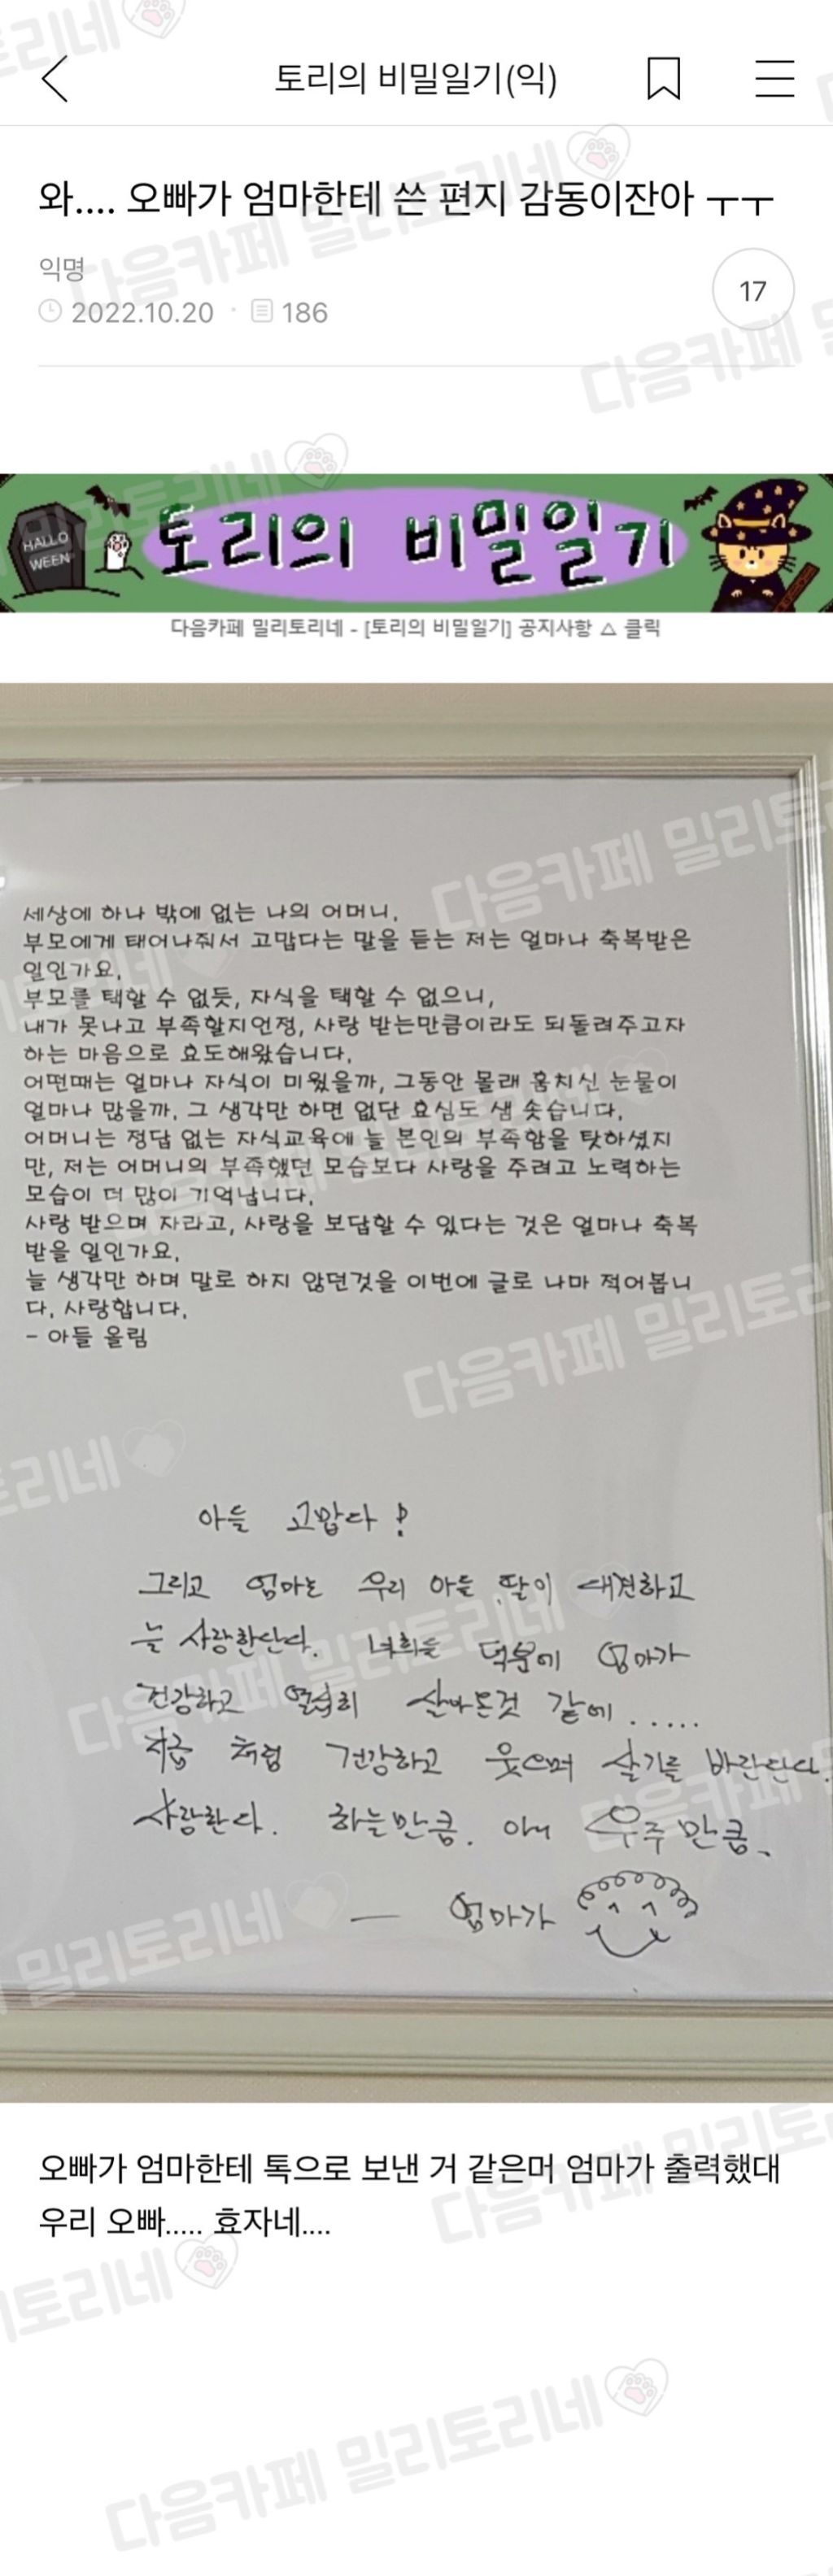 토리의 비밀일기(익)
와.... 오빠가 엄마한테 쓴 편지 감동이잔아 ㅜㅜ
익명
17
2022.10.20 · 186
HALLO
WEEN
토리의 비밀일기
다음카페 밀리토리네 - [토리의 비밀일기] 공지사항 △ 클릭
세상에 하나 밖에 없는 나의 어머니,
부모에게 태어나줘서 고맙다는 말을 듣는 저는 얼마나 축복받은
일인가요,
부모를 택할 수 없듯, 자식을 택할 수 없으니,
내가 못나고 부족할지언정, 사랑 받는만큼이라도 되돌려주고자
하는 마음으로 효도해왔습니다,
어떤때는 얼마나 자식이 미웠을까, 그동안 몰래 훔치신 눈물이
얼마나 많을까, 그 생각만 하면 없단 효심도 샘 솟습니다,
어머니는 정답 없는 자식교육에 늘 본인의 부족함을 탓하셨지
만, 저는 어머니의 부족했던 모습보다 사랑을 주려고 노력하는
모습이 더 많이 기억납니다,
사랑 받으며 자라고, 사랑을 보답할 수 있다는 것은 얼마나 축복
받을 일인가요,
늘 생각만 하며 말로 하지 않던것을 이번에 글로 나마 적어봅니
다, 사랑합니다,
- 아들 올림
아들 고맙다!
그리고 엄마는 우리 아들 딸이 대견하고
늘 사랑한단다. 너희들 덕분에 엄마가
건강하고 열심히 살아온것 같애.....
지금 처럼 건강하고 웃으며 살기를 바란단다.
사랑한다. 하늘만큼. 아니 우주만큼.
— 엄마가
오빠가 엄마한테 톡으로 보낸 거 같은머 엄마가 출력했대
우리 오빠..... 효자네....
다음카페 밀리토리네